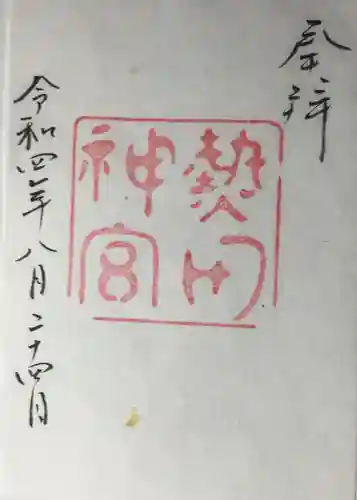 奉拝
熱田
神宮
令和四年八月二十四日